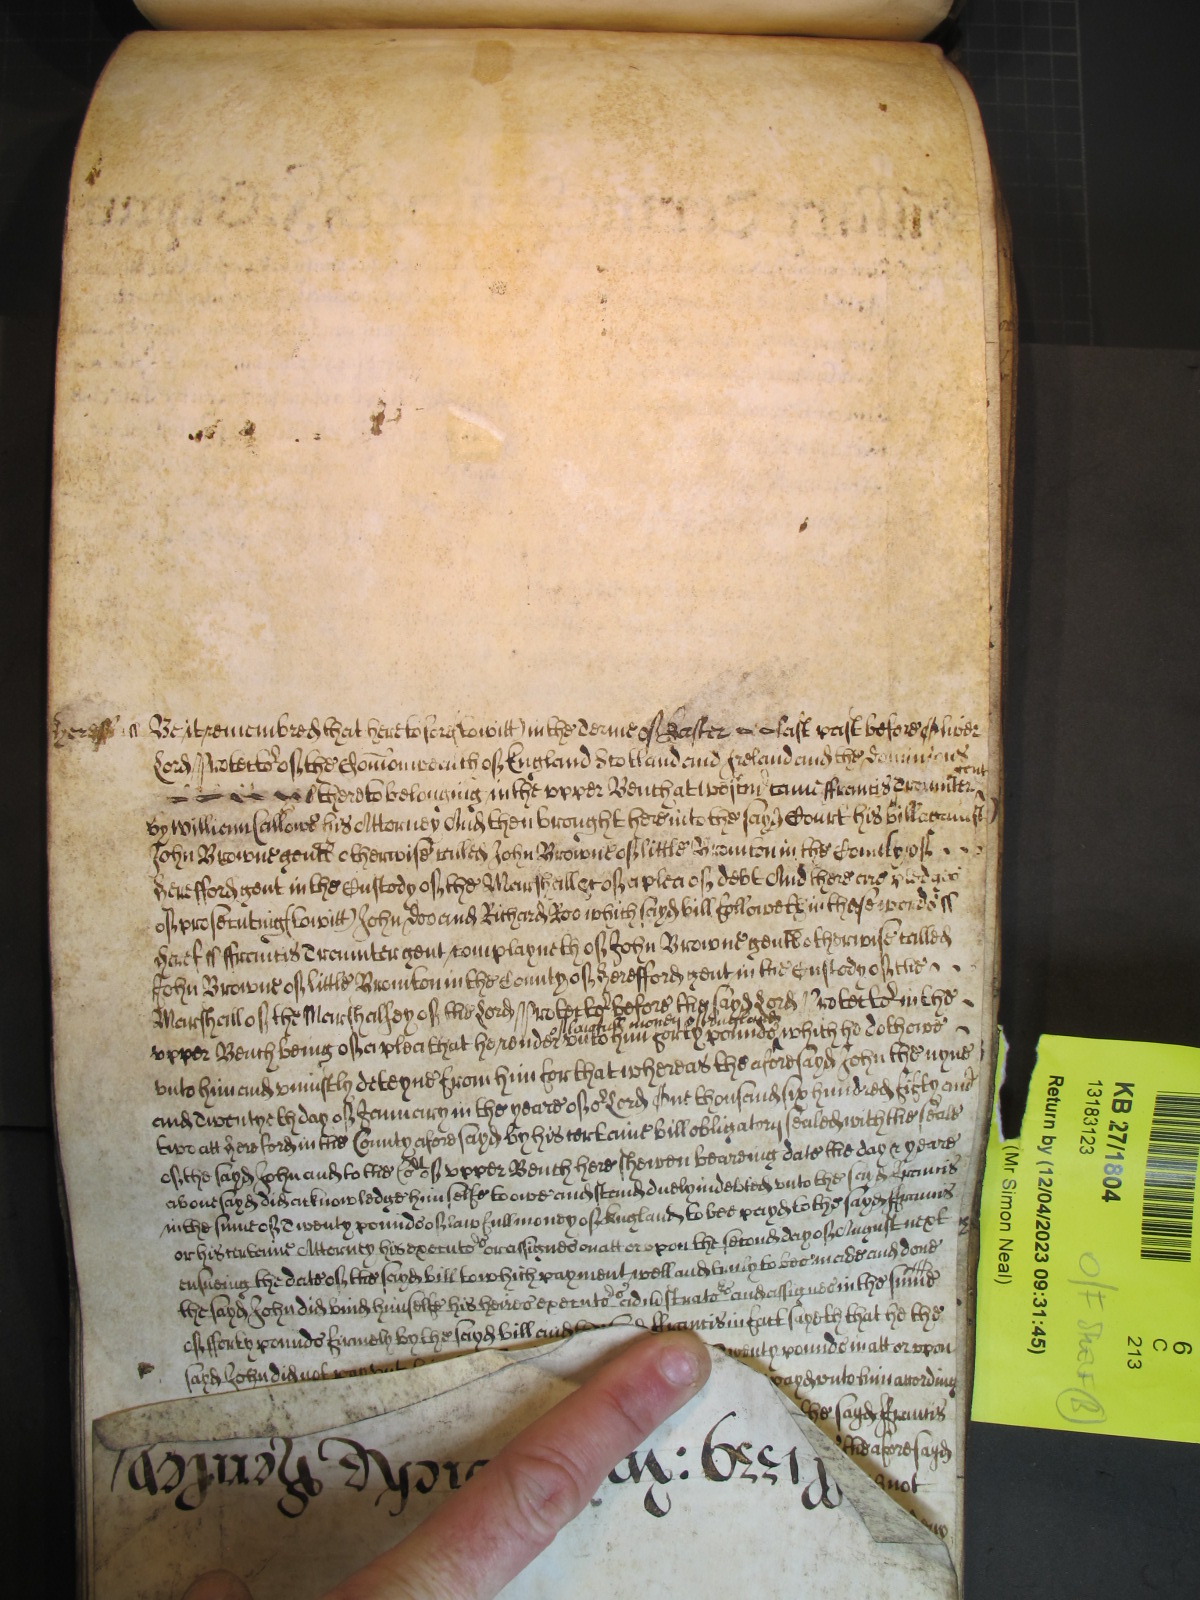 Hereff ss Be it remembred that heretofore (to witt) in the Terme of Easter last past before Oliver
Lord Protector of the Comonwealth of England Scotland and Ireland and the dominions
thereto belonging in the upper Bench at Westm came ffrancis Traunter gent
by William Callowe his Attorney And then brought here into the sayd Court his bill against
John Browne gent otherwise called John Browne of little Bromton in the County of
Herefford gent in the Custody of the Marshall &c of a plea of debt And there are pledges
of prosecuting (to witt) John Doo and Richard Roo which sayd bill followeth in these words ss
Heref ss ffrancis Traunter gent complayneth of John Browne gent otherwise called
John Browne of little Bromton in the County of Herefford gent in the Custody of the
Marshall of the Marshalsey of the Lord Protector before the sayd Lord Protector in the
upper Bench being of a plea that he render unto him forty pounds of lawfull money of England which he doth owe
unto him and uniustly deteyne from him for that whereas the aforesayd John the nyne
and Twentyeth day of January in the yeare of or Lord One thousand six hundred fifty and
two att Hereford in the County aforesayd by his certaine bill obligatory sealed with the seale
of the sayd John and to the Cort of upper Bench here shewen beareing date the day & yeare
abovesayd did acknowledge himselfe to owe and stand duely indebted unto the sayd ffrancis
in the sume of Twenty pounds of lawfull money of England to bee payd to the sayd ffrancis
or his certaine Attorney his executors or assignes on att or upon the second day of August next
ensueing the date of the sayd bill to which payment well and truly to bee made and done
the sayd John did bind himselfe his heires executors administrators and assignes in the sume
of fforty pounds firmely by the sayd bill and ffrancis in fact sayeth that he the
sayd John did not pay Twenty pounds in att or upon
payd unto him according
the sayd ffrancis
the aforesayd
not
KB 27/1804
13183123
Return by (12/04/2023 09:31:45)
(Mr Simon Neal)
6
C
213